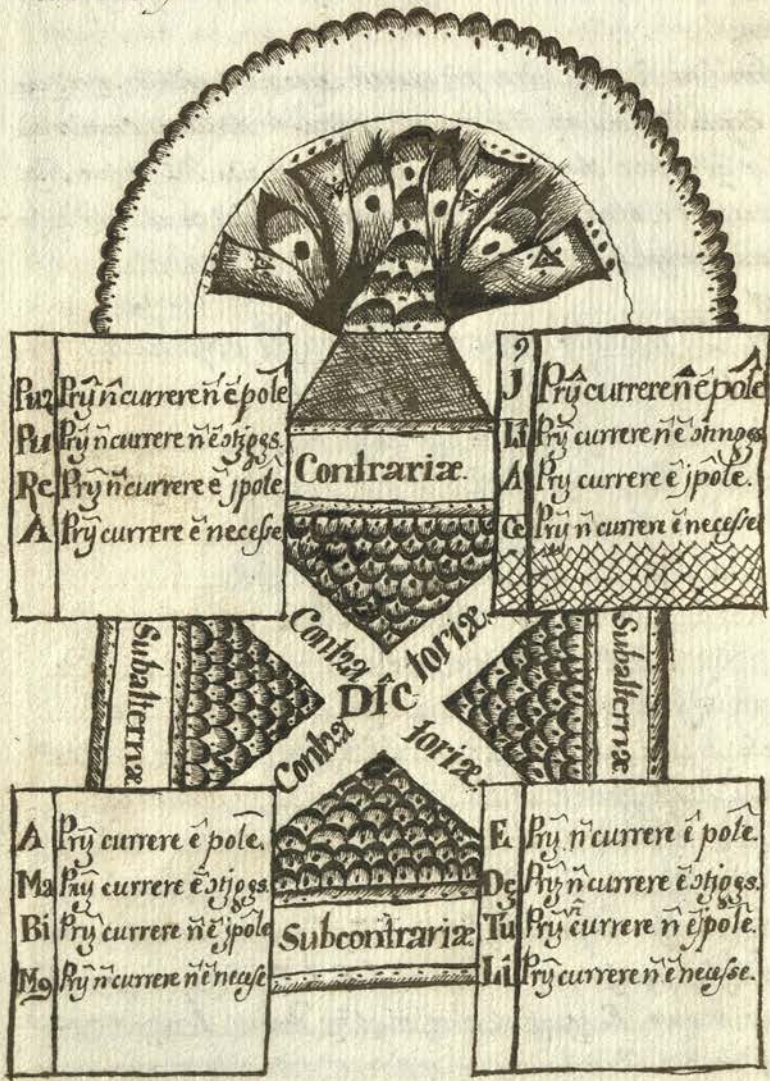 Pur Prỹ n̄ currere n̄ ē pole
Pu Prỹ n̄ currere n̄ ē ɔtjǥs.
Re Prỹ n̄ currere ē jpole.
A Prỹ currere ē necesse
J Prỹ currere n̄ ē pole
Li Prỹ currere n̄ ē
A Prỹ currere ē jpole.
Ce Prỹ n̄ currere ē necesse
Contrariæ.
Contra toriæ
Subalternæ
Dic
Subalternæ
Contra toriæ.
A Prỹ currere ē pole.
Ma Prỹ currere ē ɔtjǥs.
Bi Prỹ currere n̄ ē jpole
Prỹ n̄ currere n̄ ē necesse
Subcontrariæ
E Prỹ n̄ currere ē pole.
De Prỹ n̄ currere ē ɔtjǥs.
Tu Prỹ n̄ currere n̄ ē jpole.
Li Prỹ currere n̄ ē necesse.